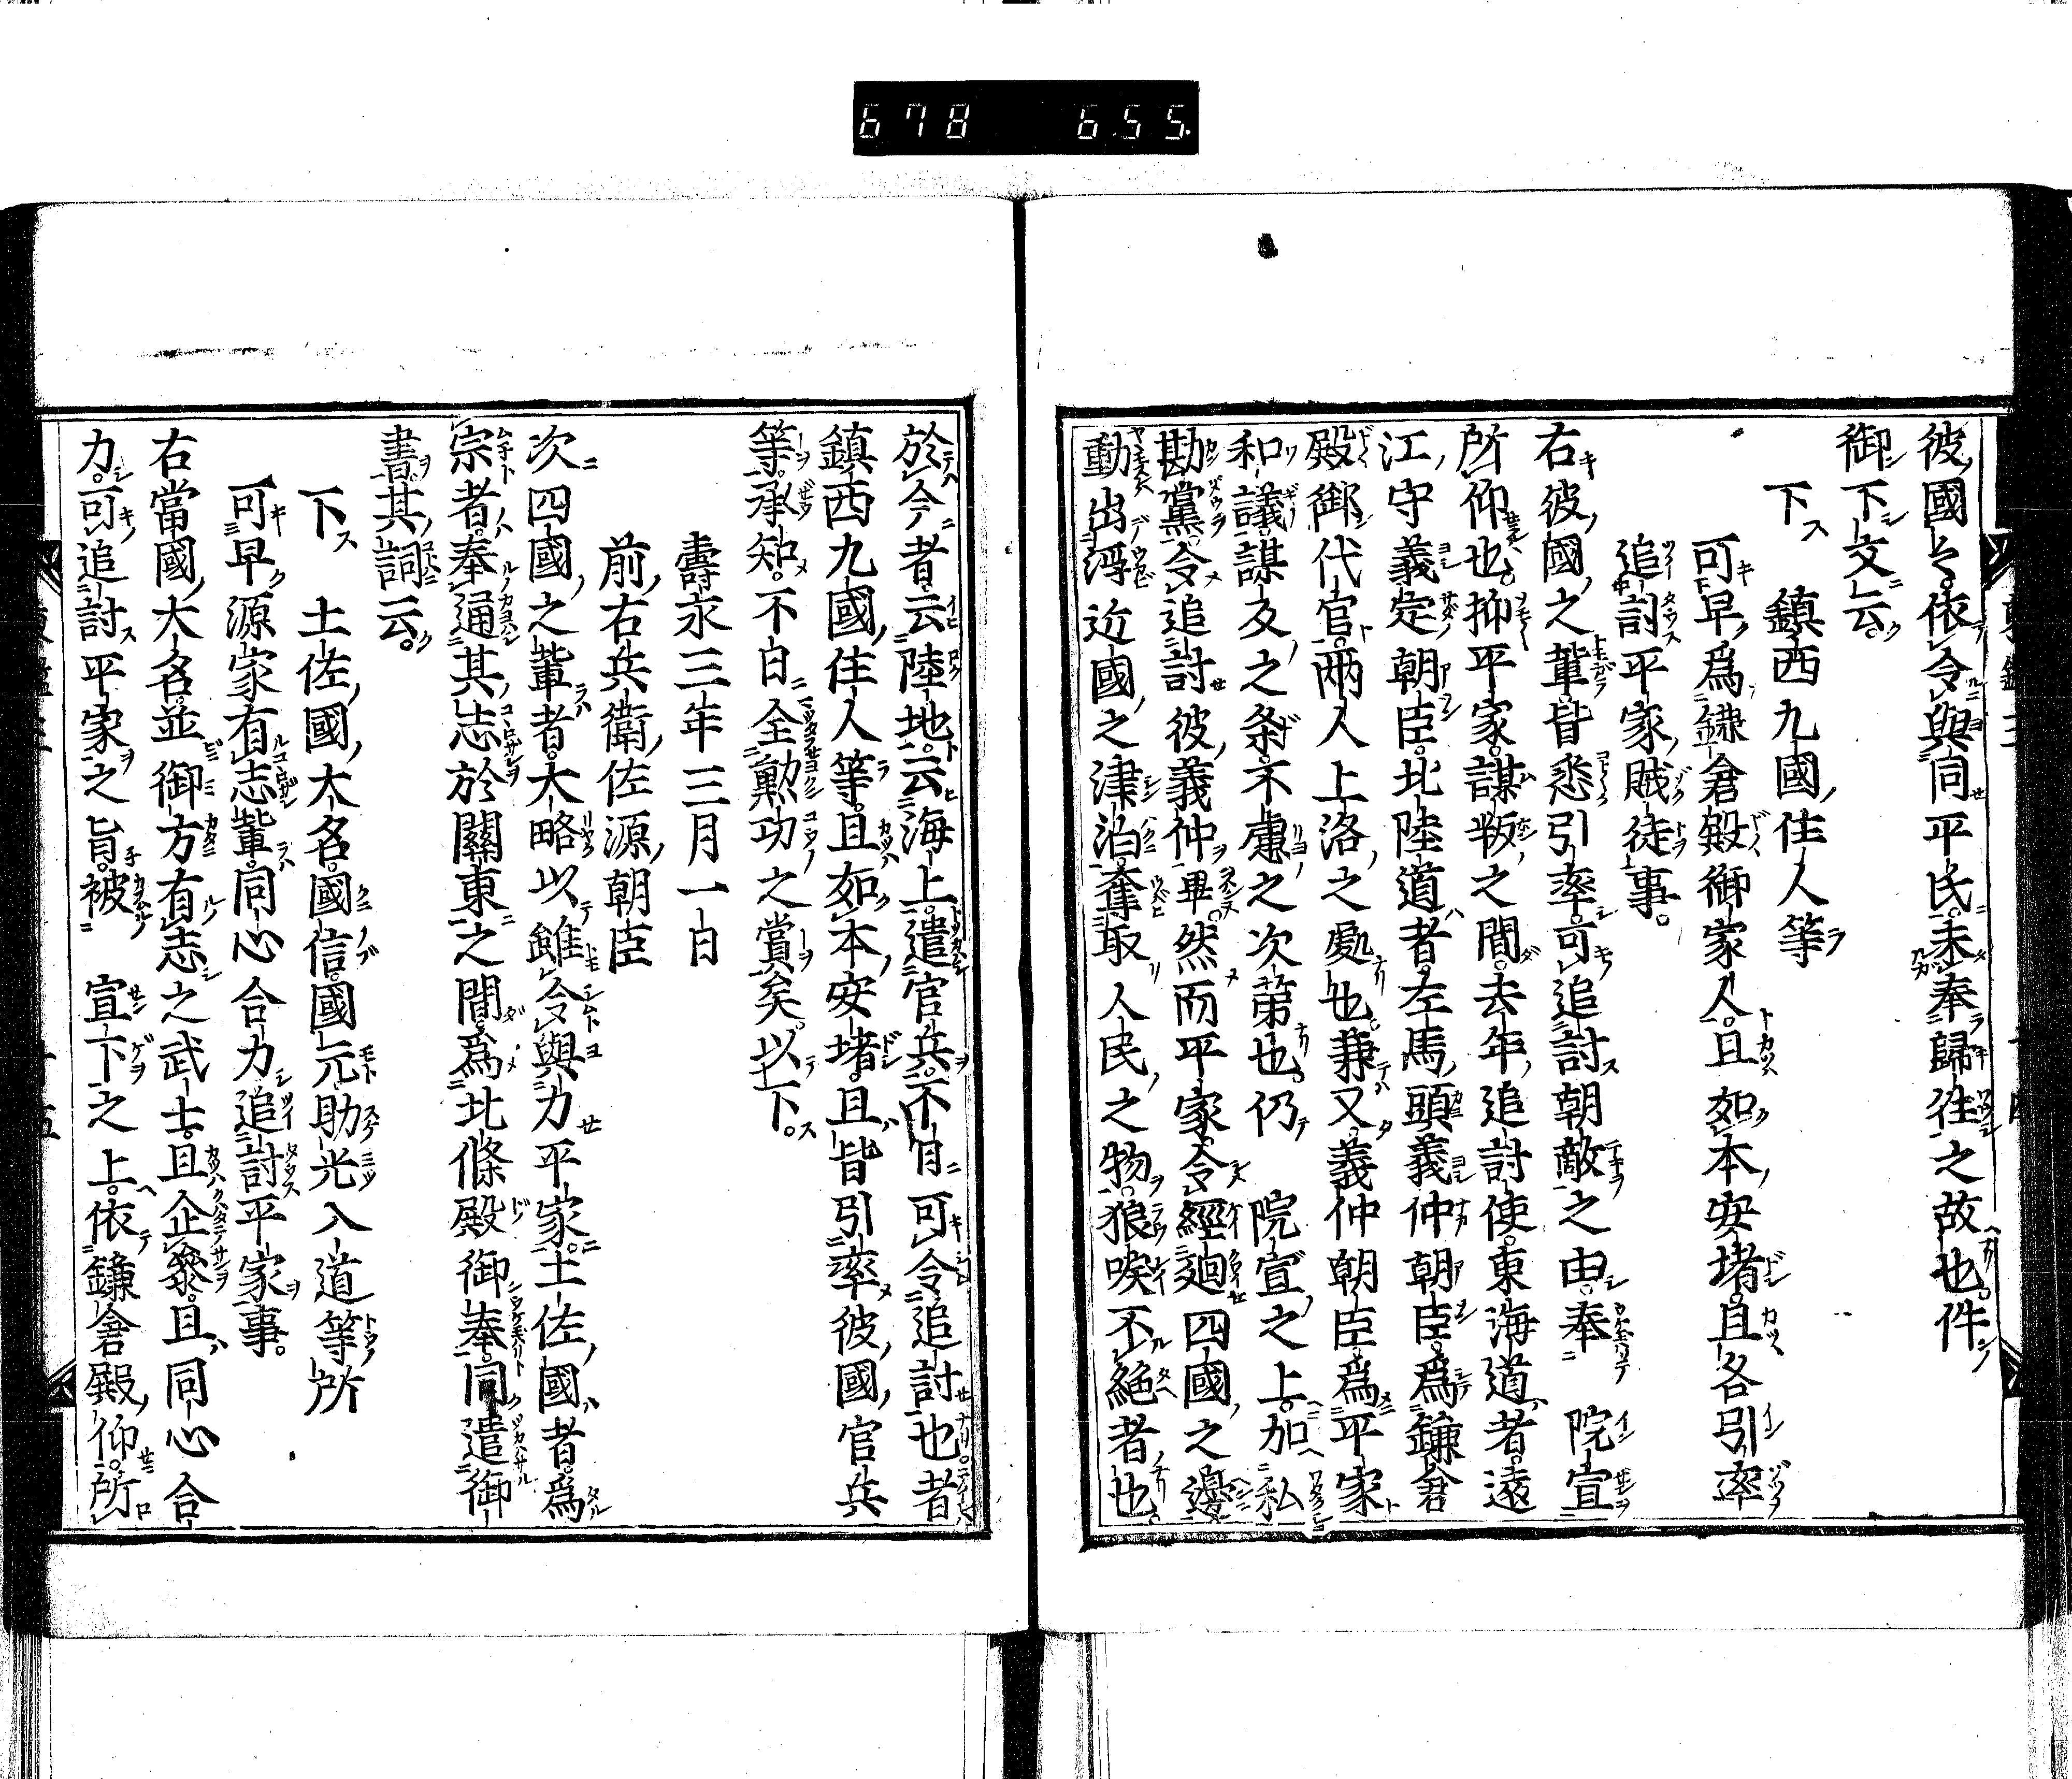 678 655
彼國々。依令與同平氏。未奉歸往之故也。件
御下文云。
下 鎮西九國住人等
可早爲鎌倉殿御家人。且如本安堵。且各引率
追討平家賊徒事。
右彼國之輩。皆悉引率。可追討朝敵之由。奉 院宣
所仰也。抑平家謀叛之間。去年追討使。東海道者。遠
江守義定朝臣。北陸道者。左馬頭義仲朝臣。爲鎌倉
殿御代官。兩人上洛之處也。兼又義仲朝臣。爲平家
和議。謀反之条。不慮之次第也。仍 院宣之上。加私
勘黨。令追討彼義仲畢。然而平家令經廻四國之邊
動出浮近國之津泊。奪取人民之物。狼唳不絶者也。
於今者。云陸地。云海上。遣官兵。不日可令追討也者
鎮西九國住人等。且如本安堵。且皆引率彼國官兵
等。承知。不日全勲功之賞矣。以下。
壽永三年三月一日
前右兵衛佐源朝臣
次四國之輩者。大略以雖令與力平家。土佐國者。爲
宗者。奉通其志於關東之間。爲北條殿御奉。同遣御
書。其詞云。
下 土佐國大名。國信。國元。助光入道等所
可早源家有志輩。同心合力追討平家事。
右當國大名。並御方有志之武士。且企參。且同心合
力。可追討平家之旨。被 宣下之上。依鎌倉殿仰。所